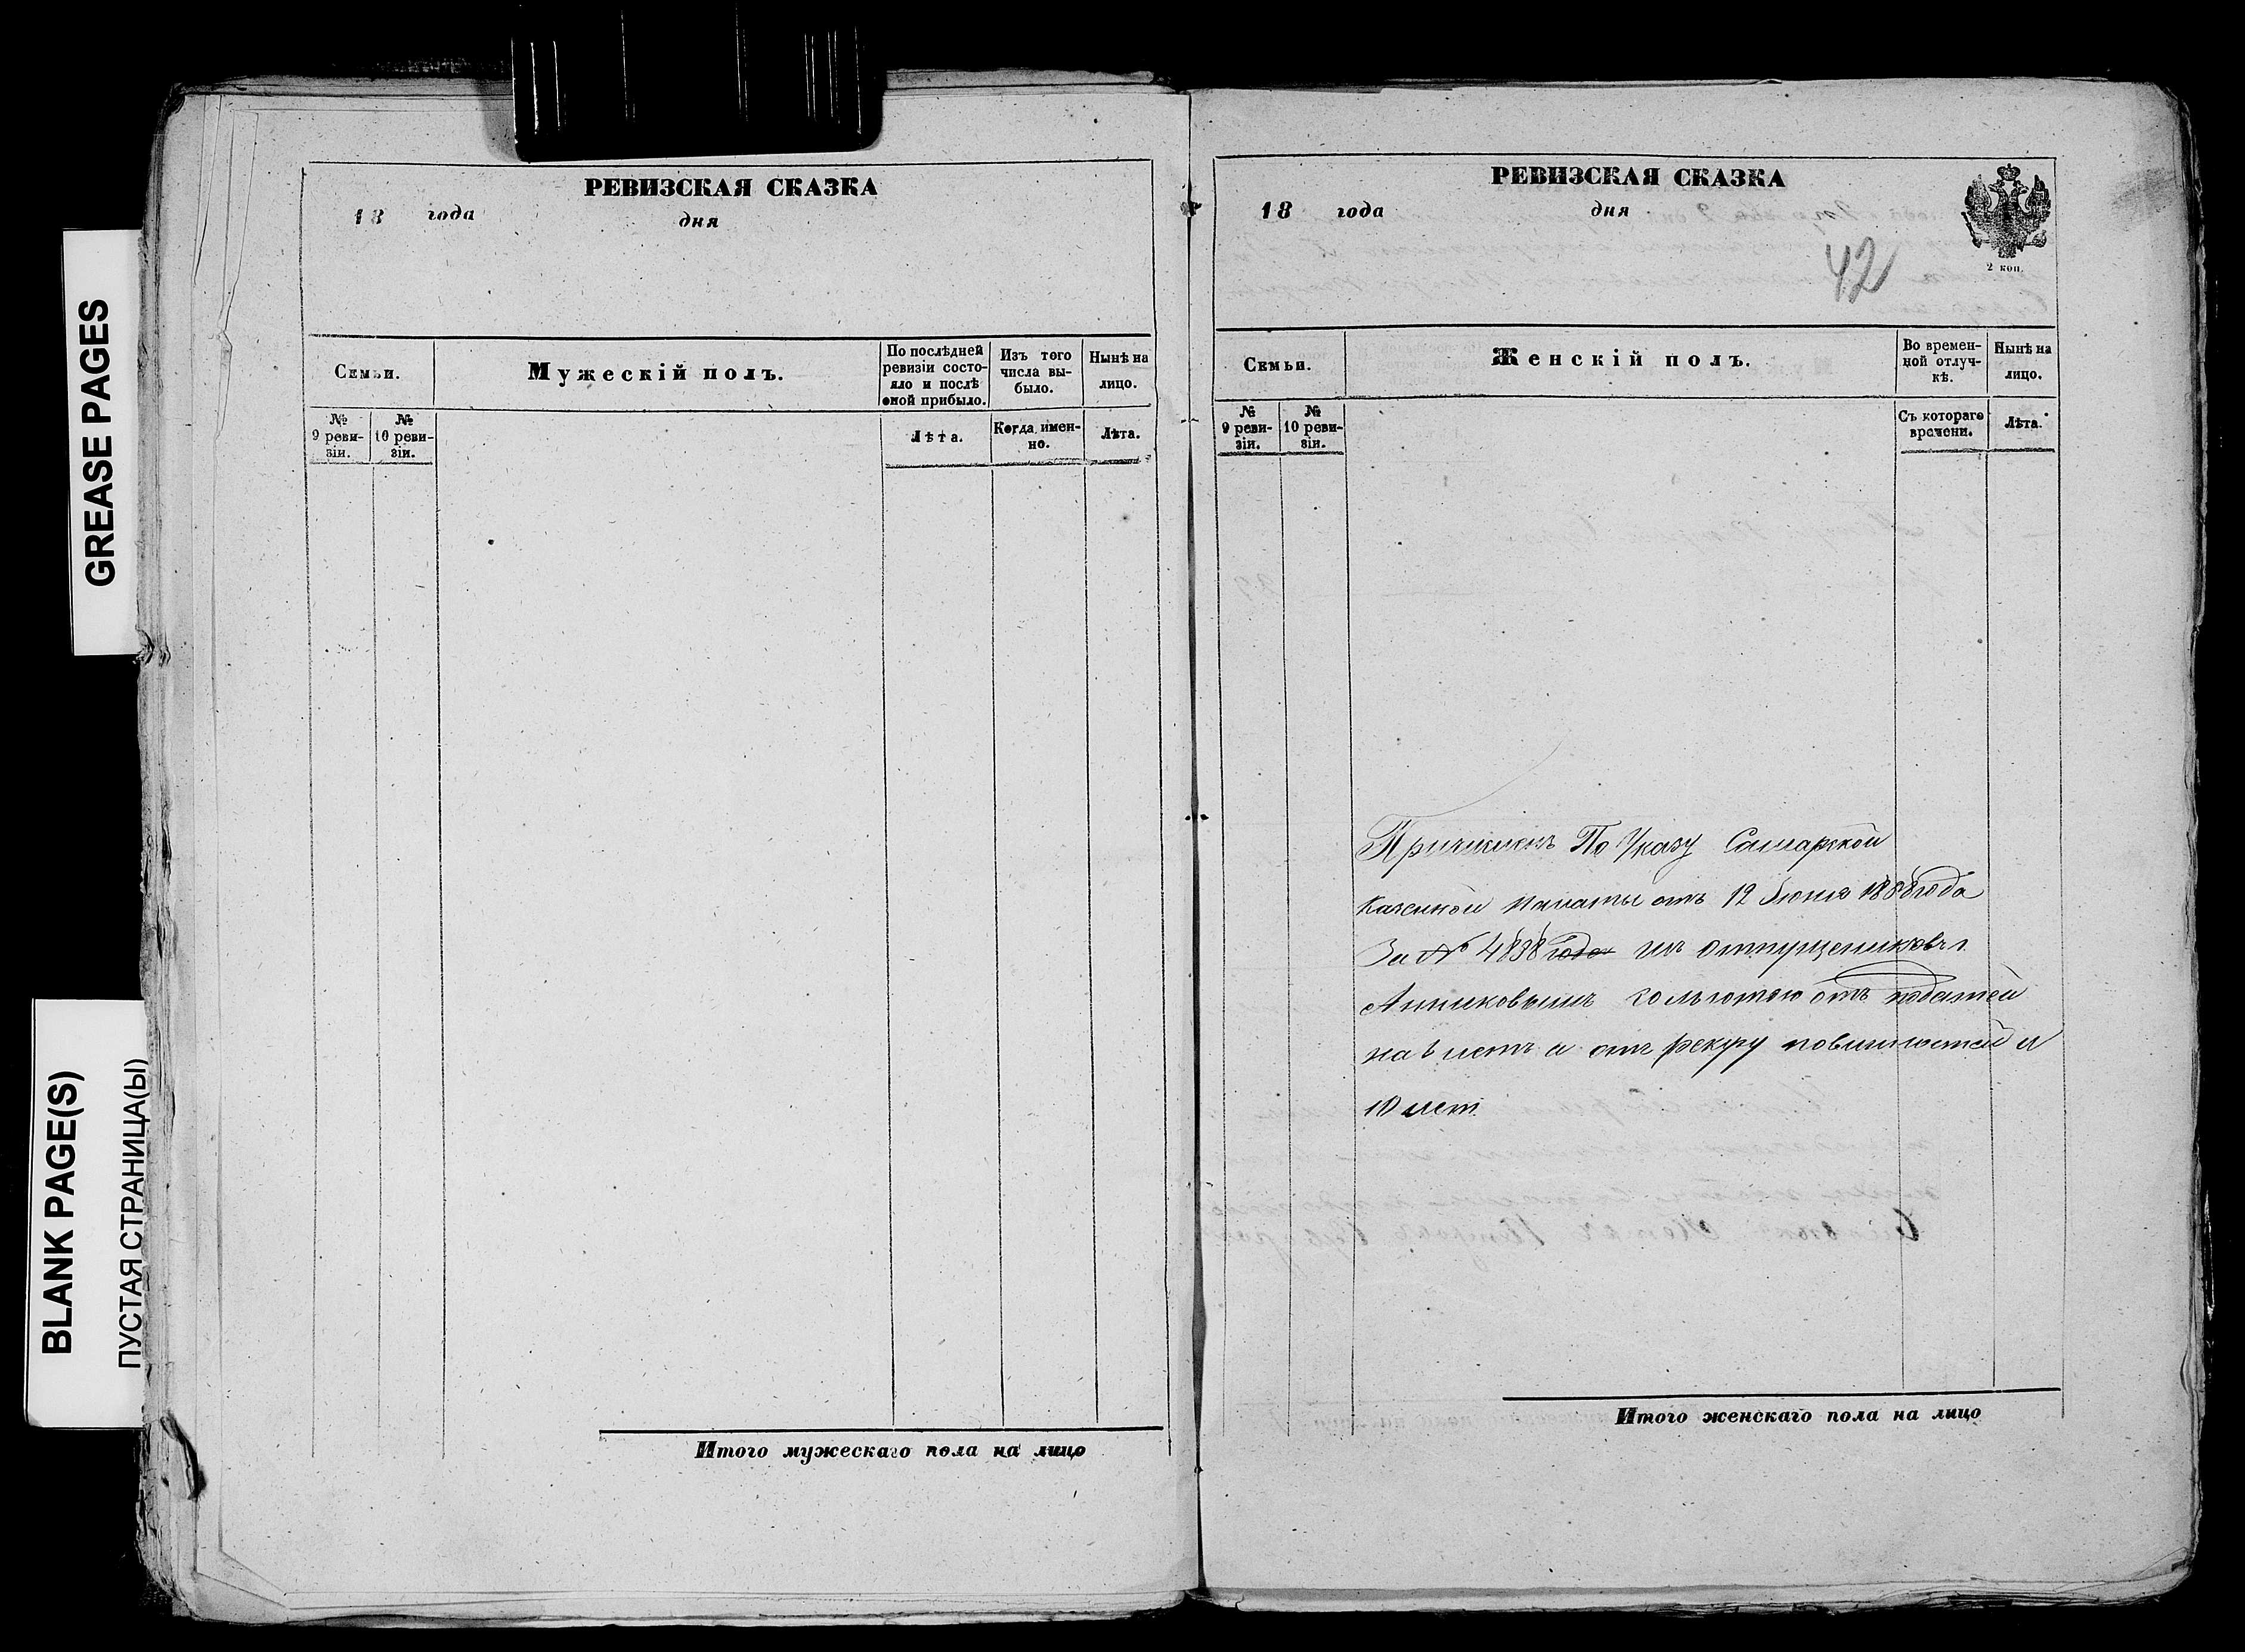 GREASE PAGES
BLANK PAGE(S)
ПУСТАЯ СТРАНИЦА(Ы)
РЕВИЗСКАЯ СКАЗКА
18 года дня
Семьи.
Мужескій полъ.
По послѣдней ревизіи состо-
яло и послѣ
оной прибыло.
Изъ того
числа вы-
было.
Нынѣ на
лицо.
№
9 реви-
зіи.
№
10 реви-
зіи.
Лѣта.
Когда имен-
но.
Лѣта.
Итого мужескаго пола на лицо
РЕВИЗСКАЯ СКАЗКА
18 года дня
2 коп.
42
Семьи.
Женскій полъ.
Во времен-
ной отлуч-
кѣ.
Нынѣ на
лицо.
№
9 реви-
зіи.
№
10 реви-
зіи.
Съ котораго
времени.
Лѣта.
Причисленъ По Указу Самарской
Казенной палаты отъ 12 Іюня года
За № 4838 года изъ отпущениковъ г.
Анниковымъ сольготою отъ податей
на летъ а отъ рекру повинностей и
10 лет
Итого женскаго пола на лицо